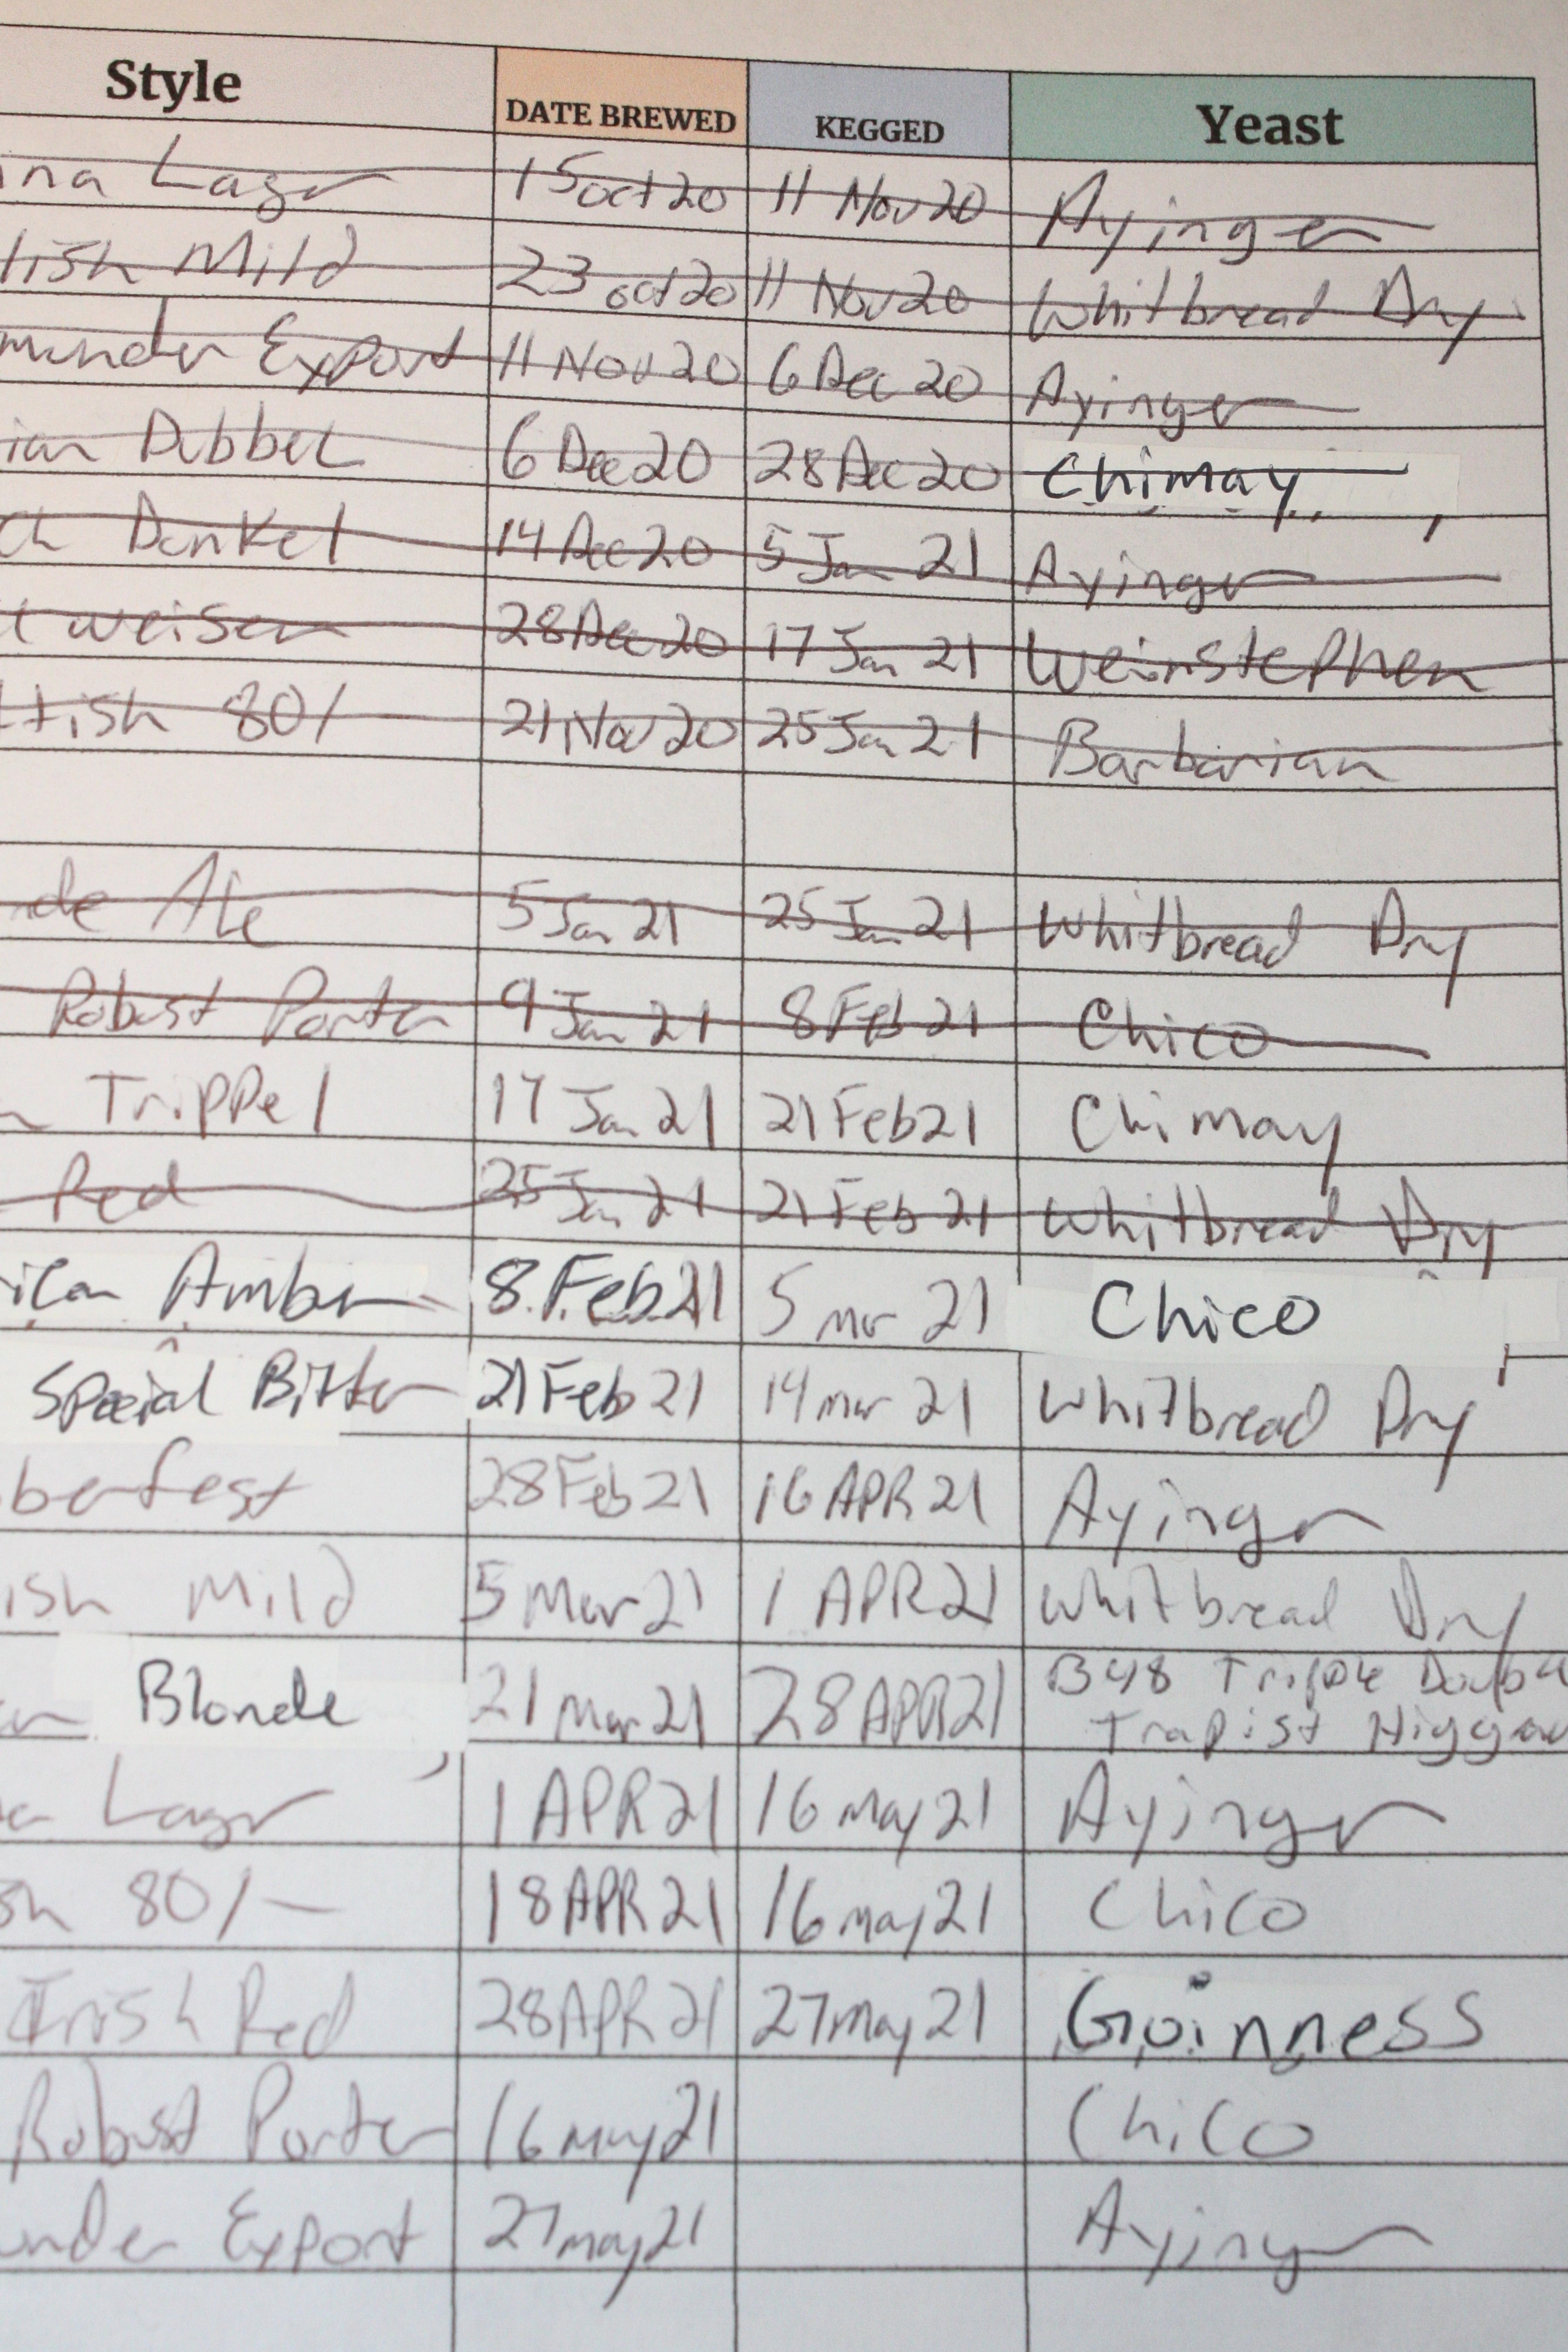 Style DATE BREWED KEGGED Yeast
na Lager 15 Oct 20 11 Nov 20 Ayinger
lish Mild 23 Oct 20 11 Nov 20 Whitbread Dry
munder Export 11 Nov 20 6 Dec 20 Ayinger
ian Dubbel 6 Dec 20 28 Dec 20 Chimay
ch Dunkel 14 Dec 20 5 Jan 21 Ayinger
weisen 28 Dec 20 17 Jan 21 Weinstephen
tish 80/ 21 Nov 20 25 Jan 21 Barbarian
de Ale 5 Jan 21 25 Jan 21 Whitbread Dry
Robust Porter 9 Jan 21 8 Feb 21 Chico
n Trippel 17 Jan 21 21 Feb 21 Chimay
Red 25 Jan 21 21 Feb 21 Whitbread Dry
ican Amber 8 Feb 21 5 Mar 21 Chico
Special Bitter 21 Feb 21 14 Mar 21 Whitbread Dry
berfest 28 Feb 21 16 APR 21 Ayinger
ish Mild 5 Mar 21 1 APR 21 Whitbread Dry
Blonde 21 Mar 21 28 APR 21 B48 Triple Double
Trapist Higgau
Lager 1 APR 21 16 May 21 Ayinger
sh 80/- 18 APR 21 16 may 21 Chico
Irish Red 28 APR 21 27 May 21 Guinness
Robust Porter 16 may 21 Chico
under Export 27 may 21 Ayinger